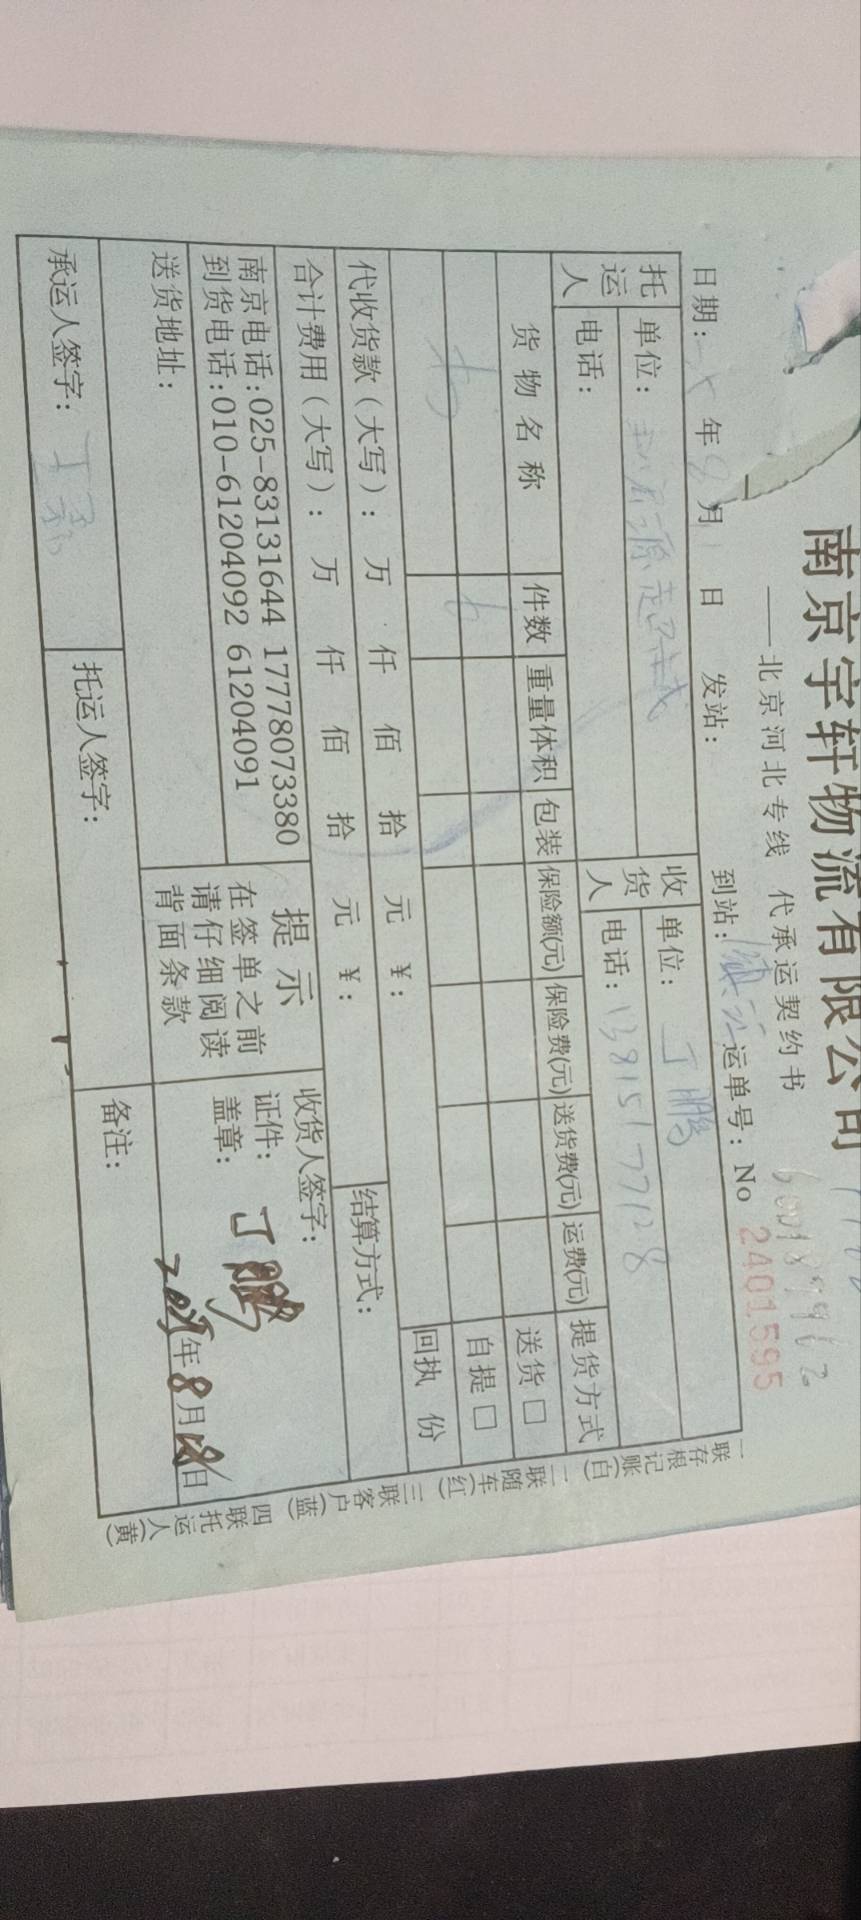 南京宇轩物流有限公司
——北京河北专线 代承运契约书
日期: 年8月 日 发站: 到站:镇江 运单号:No 2401595
托运人 单位: 收货人 单位:丁鹏
电话: 电话:13815177128
货物名称 件数 重量体积 包装 保险额(元) 保险费(元) 送货费(元) 运费(元) 提货方式
送货□
自提□
回执 份
代收货款(大写): 万 仟 佰 拾 元 ¥:
合计费用(大写): 万 仟 佰 拾 元 ¥: 结算方式:
南京电话:025-83131644 17778073380
到货电话:010-61204092 61204091
送货地址:
提示
在签单之前
请仔细阅读
背面条款
收货人签字:
证件:
盖章: 丁鹏
年8月18日
承运人签字: 托运人签字: 备注:
一联存根记账(白) 二联随车(红) 三联客户(蓝) 四联托运人(黄)